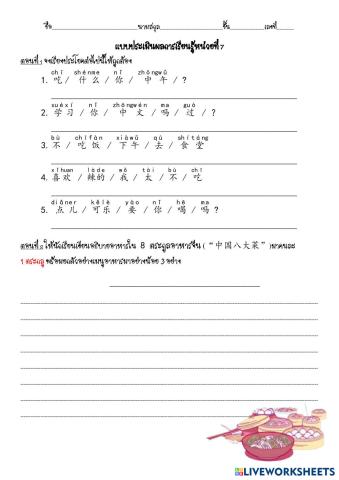 ชื่อ__________นามสกุล__________ชั้น__________เลขที่______
แบบประเมินผลการเรียนรู้หน่วยที่ 7
ตอนที่ 1 จงเรียงประโยคต่อไปนี้ให้ถูกต้อง
chī shénme nǐ zhōngwǔ
1. 吃 / 什么 / 你 / 中午 / ?
xuéxí nǐ zhōngwén ma guò
2. 学习 / 你 / 中文 / 吗 / 过 / ?
bù chīfàn xiàwǔ qù shítáng
3. 不 / 吃饭 / 下午 / 去 / 食堂
xǐhuan làde wǒ tài bù chī
4. 喜欢 / 辣的 / 我 / 太 / 不 / 吃
diǎner kělè yào nǐ hē ma
5. 点儿 / 可乐 / 要 / 你 / 喝 / 吗 ?
ตอนที่ 2 ให้นักเรียนเขียนอธิบายอาหารใน 8 ตระกูลอาหารจีน ("中国八大菜") มาคนละ
1 ตระกูล พร้อมยกตัวอย่างเมนูอาหารมาอย่างน้อย 3 อย่าง
LIVEWORKSHEETS